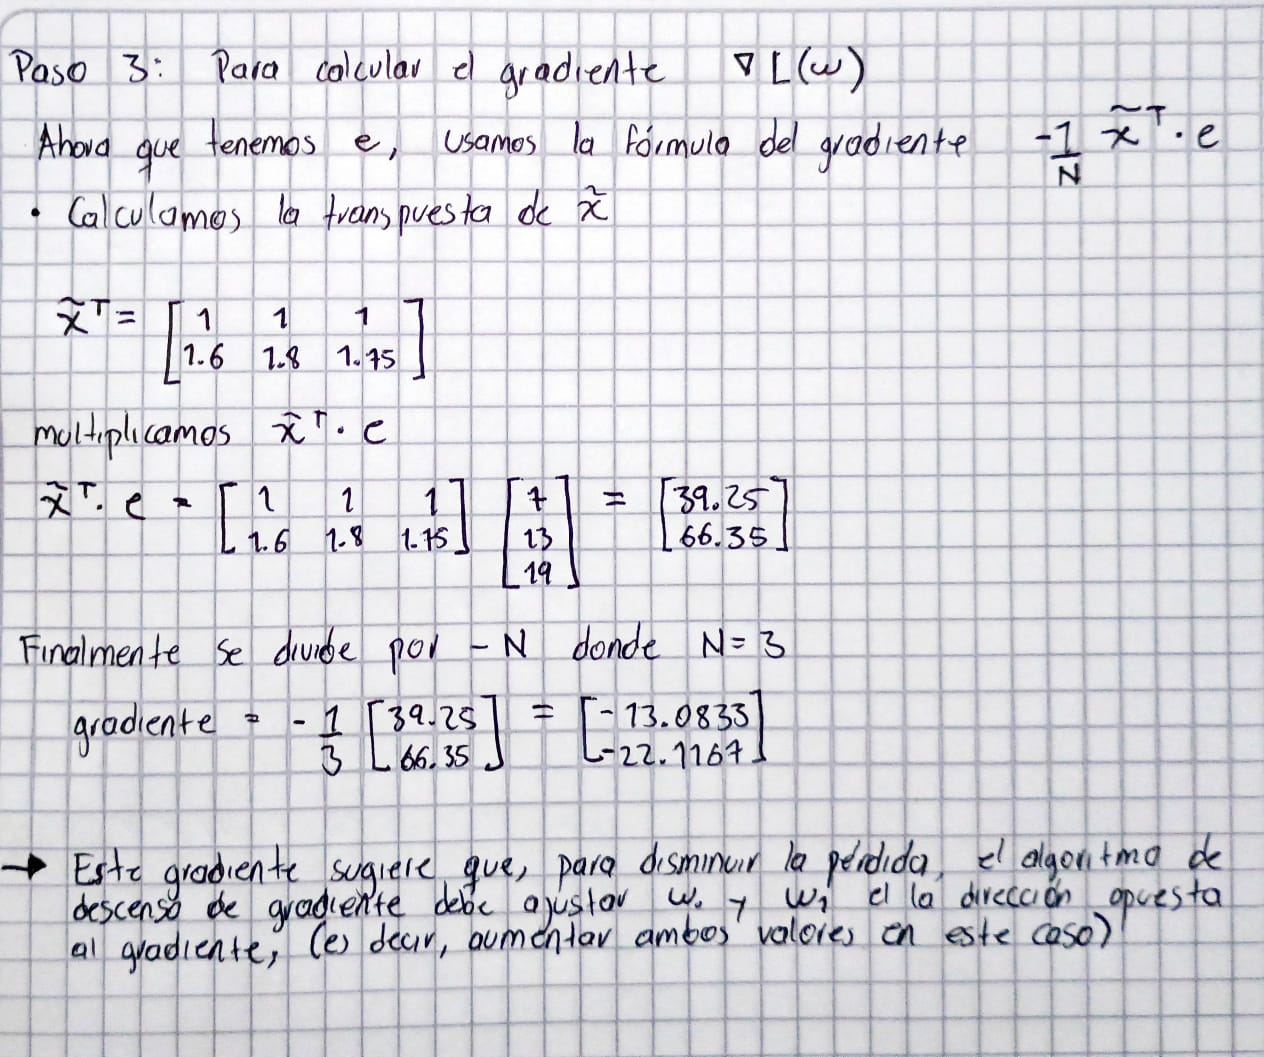 Paso 3: Para calcular el gradiente ∇ L(w)
Ahora que tenemos e, usamos la fórmula del gradiente -1/N x̃ᵀ · e
• Calculamos la transpuesta de x̃
x̃ᵀ = [ 1 1 1
1.6 1.8 1.75 ]
multiplicamos x̃ᵀ · e
x̃ᵀ · e = [ 1 1 1 ; 1.6 1.8 1.75 ] [ 7 ; 13 ; 19 ] = [ 39.25 ; 66.35 ]
Finalmente se divide por - N donde N = 3
gradiente = - 1/3 [ 39.25 ; 66.35 ] = [ -13.0833 ; -22.1167 ]
→ Este gradiente sugiere que, para disminuir la pérdida, el algoritmo de
descenso de gradiente debe ajustar w₀ y w₁ el la dirección opuesta
al gradiente, (es decir, aumentar ambos valores en este caso)